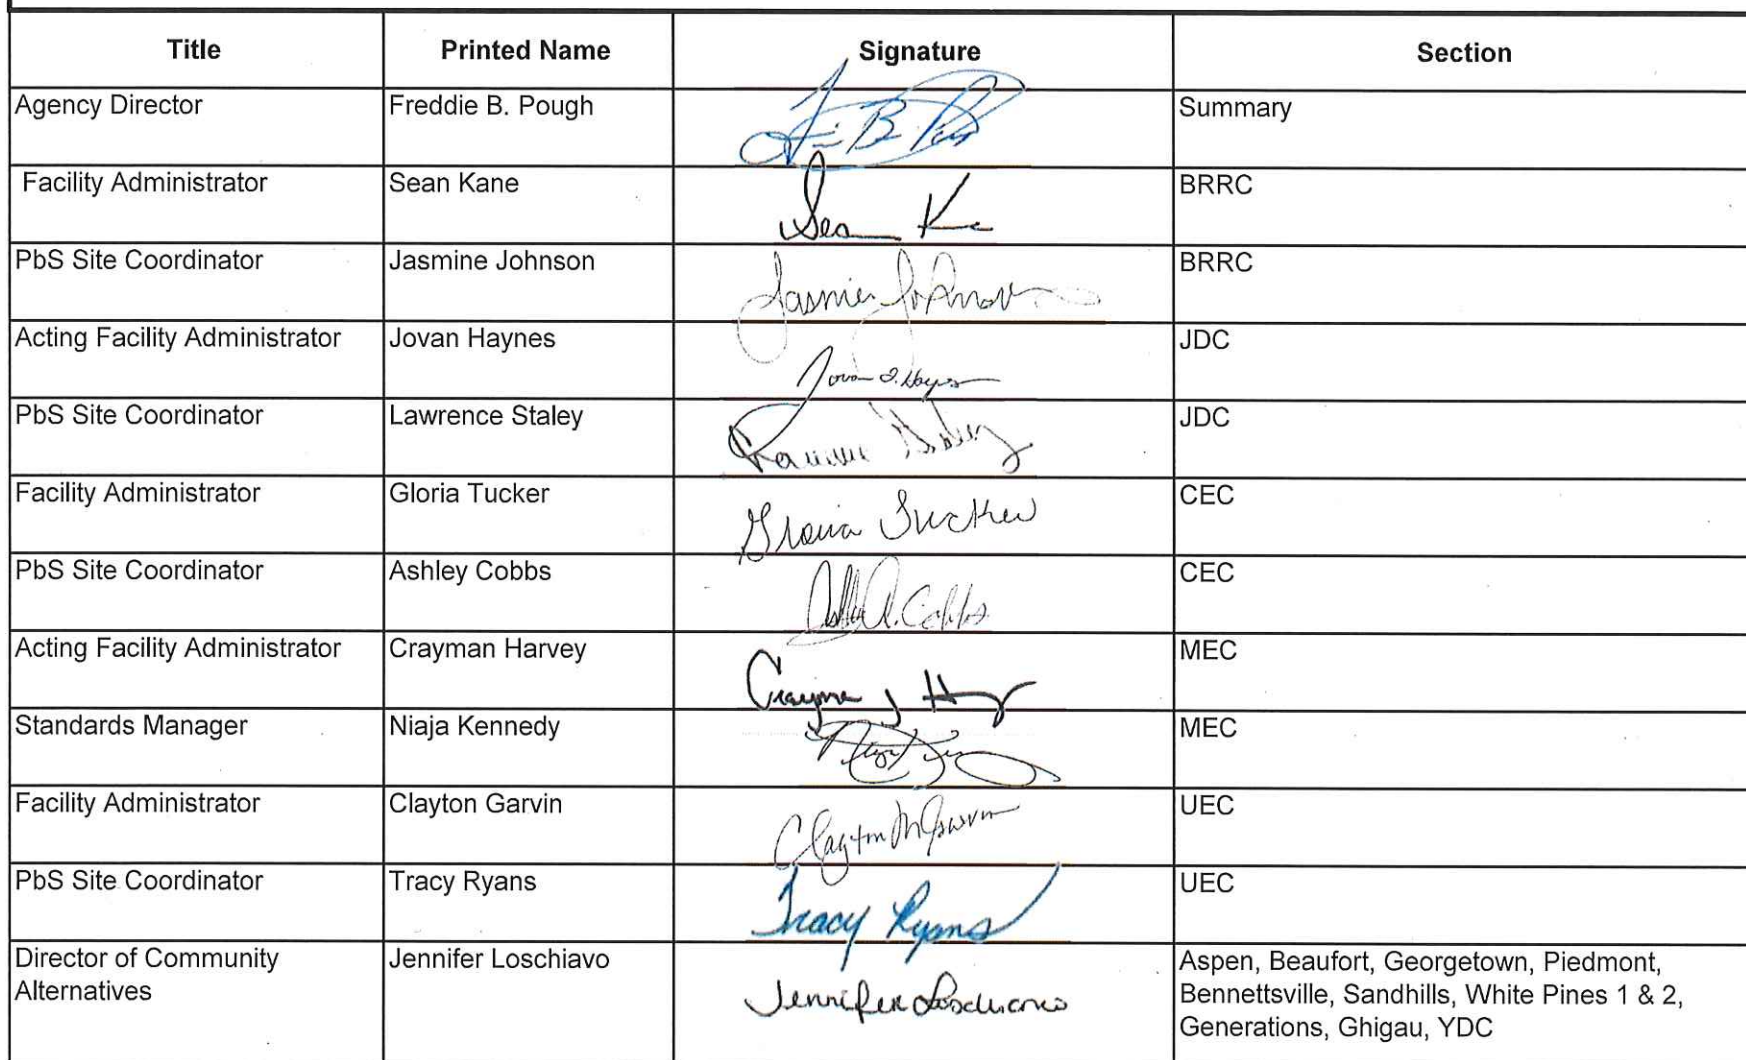 Title Printed Name Signature Section
Agency Director Freddie B. Pough Summary
Facility Administrator Sean Kane Sean K BRRC
PbS Site Coordinator Jasmine Johnson Jasmine Johnson BRRC
Acting Facility Administrator Jovan Haynes Jovan J. Haynes JDC
PbS Site Coordinator Lawrence Staley JDC
Facility Administrator Gloria Tucker Gloria Tucker CEC
PbS Site Coordinator Ashley Cobbs A. Cobbs CEC
Acting Facility Administrator Crayman Harvey MEC
Standards Manager Niaja Kennedy MEC
Facility Administrator Clayton Garvin Clayton M Garvin UEC
PbS Site Coordinator Tracy Ryans Tracy Ryans UEC
Director of Community Jennifer Loschiavo Jennifer Loschiavo Aspen, Beaufort, Georgetown, Piedmont,
Alternatives Bennettsville, Sandhills, White Pines 1 & 2,
Generations, Ghigau, YDC